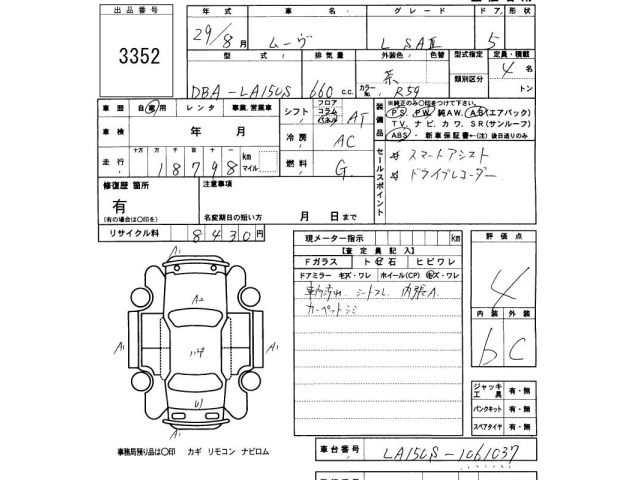 出品番号
3352
年式 車名 グレード ドア形状
29/8月 ムーヴ L SAⅢ 5
型式 排気量 外装色 色替 型式指定 定員・積載
DBA-LA150S 660c.c. 茶 カラーNo. R59 類別区分 4名
トン
車歴 自家用 レンタ 事業.営業車
シフト フロア コラム パネル AT
車検 年 月
冷房 AC
走行 十万 万 千 百 十
18798 km マイル
燃料 G
装備品
※純正のみ○印をつけて下さい。
PS. PW. 純AW. AB(エアバック)
TV. ナビ. カワ. SR(サンルーフ)
ABS・新車保証書←(注)後日送りのみ
セールスポイント
☆ スマートアシスト
☆ ドライブレコーダー
修復歴 箇所
有
(有の場合は○印を)
注意事項
名変期日の短い方 月 日まで
リサイクル料 8430円
A1
A2
A1 ハゲ A1
U1
A1
事務局預り品は○印 カギ リモコン ナビロム
現メーター指示 km
【査定員記入】
Fガラス ト 石 ヒビワレ
ドアミラー キズ・ワレ ホイール(CP) キズ・ワレ
シートスレ 内張A.
カーペットシミ
評価点
4
内装 外装
b C
ジャッキ 工具 有・無
パンクキット 有・無
スペアタイヤ 有・無
車台番号 LA150S-1061037